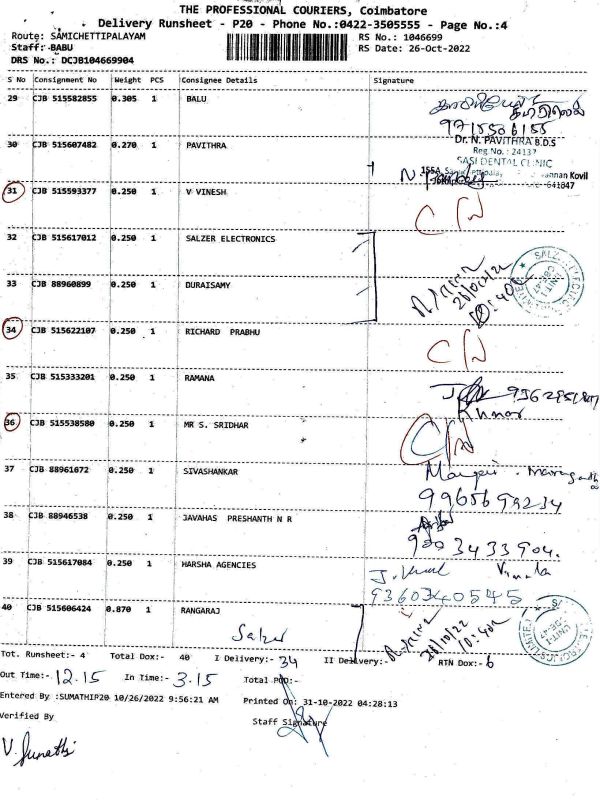 THE PROFESSIONAL COURIERS, Coimbatore
Delivery Runsheet - P20 - Phone No.:0422-3505555 - Page No.:4
Route: SAMICHETTIPALAYAM RS No.: 1046699
Staff: BABU RS Date: 26-Oct-2022
DRS No.: DCJB104669904
S No Consignment No Weight PCS Consignee Details Signature
29 CJB 515582855 0.305 1 BALU
30 CJB 515607482 0.270 1 PAVITHRA
Dr. N. PAVITHRA B.D.S
Reg No.: 24137
SASI DENTAL CLINIC
31 CJB 515593377 0.250 1 V VINESH
32 CJB 515617012 0.250 1 SALZER ELECTRONICS
33 CJB 88960899 0.250 1 DURAISAMY
34 CJB 515622107 0.250 1 RICHARD PRABHU
35 CJB 515333201 0.250 1 RAMANA
Kumar
36 CJB 515538580 0.250 1 MR S. SRIDHAR
37 CJB 88961072 0.250 1 SIVASHANKAR
9965699234
38 CJB 88946538 0.250 1 JAVAHAS PRESHANTH N R
39 CJB 515617084 0.250 1 HARSHA AGENCIES
9360340545
40 CJB 515606424 0.870 1 RANGARAJ
Salzer
Tot. Runsheet:- 4 Total Dox:- 40 I Delivery:- 34 II Delivery:- RTN Dox:- 6
Out Time:- 12.15 In Time:- 3.15 Total POD:-
Entered By :SUMATHIP20 10/26/2022 9:56:21 AM Printed On: 31-10-2022 04:28:13
Verified By Staff Signature